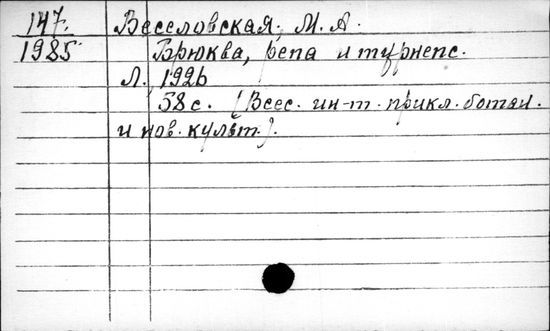 147. Веселовская, М. А.
1985 Брюква, репа и турнепс.
Л., 1926
58 с. (Всес. ин-т. прикл. ботан.
и нов. культ.).